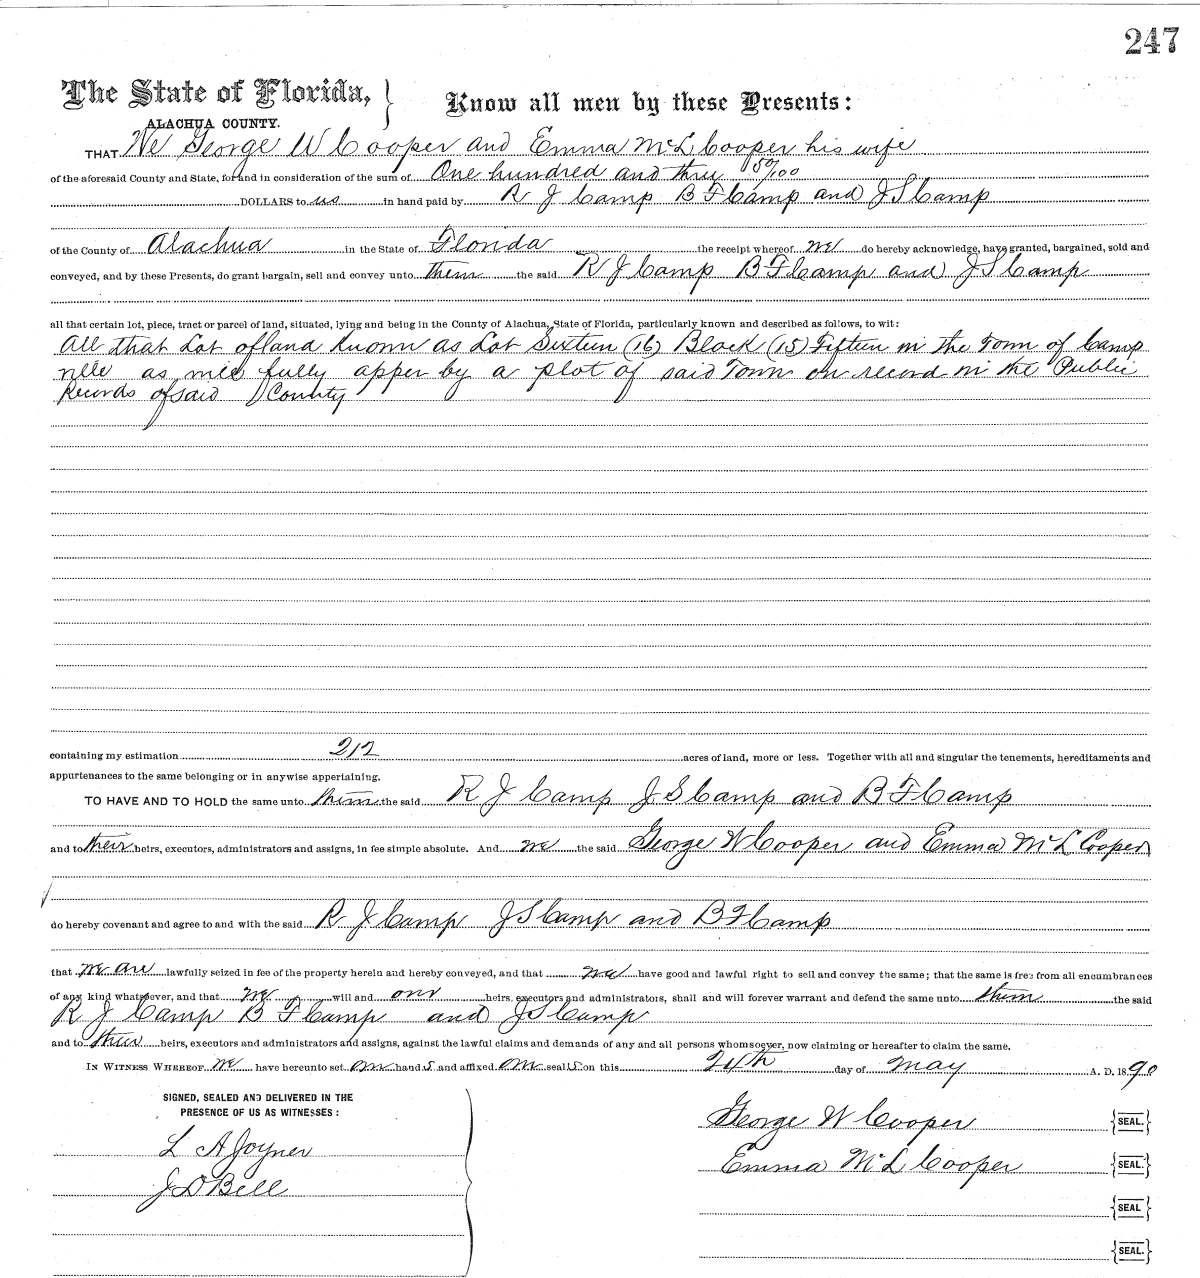 247
The State of Florida, } Know all men by these Presents:
ALACHUA COUNTY.
THAT We George W Cooper and Emma McL Cooper his wife
of the aforesaid County and State, for and in consideration of the sum of One hundred and three 50/100
DOLLARS to us in hand paid by R J Camp B F Camp and J S Camp
of the County of Alachua in the State of Florida the receipt whereof we do hereby acknowledge, have granted, bargained, sold and
conveyed, and by these Presents, do grant bargain, sell and convey unto them the said R J Camp B F Camp and J S Camp
all that certain lot, piece, tract or parcel of land, situated, lying and being in the County of Alachua, State of Florida, particularly known and described as follows, to wit:
All that Lot of land known as Lot Sixteen (16) Block (15) Fifteen in the Town of Camp
ville as fully apper by a plot of said Town on record in the Public
Records of said County
containing my estimation 2/2 acres of land, more or less. Together with all and singular the tenements, hereditaments and
appurtenances to the same belonging or in anywise appertaining.
TO HAVE AND TO HOLD the same unto them the said R J Camp J S Camp and B F Camp
and to their heirs, executors, administrators and assigns, in fee simple absolute. And we the said George W Cooper and Emma McL Cooper
do hereby covenant and agree to and with the said R J Camp J S Camp and B F Camp
that we are lawfully seized in fee of the property herein and hereby conveyed, and that we have good and lawful right to sell and convey the same; that the same is free from all encumbrances
of any kind whatsoever, and that we will and our heirs, executors and administrators, shall and will forever warrant and defend the same unto them the said
R J Camp B F Camp and J S Camp
and to their heirs, executors and administrators and assigns, against the lawful claims and demands of any and all persons whomsoever, now claiming or hereafter to claim the same.
IN WITNESS WHEREOF we have hereunto set our hands and affixed our seals on this 24th day of May A. D. 1890
SIGNED, SEALED AND DELIVERED IN THE
PRESENCE OF US AS WITNESSES:
L A Joyner
J D Bell
George W Cooper {SEAL.}
Emma McL Cooper {SEAL.}
{SEAL}
{SEAL.}